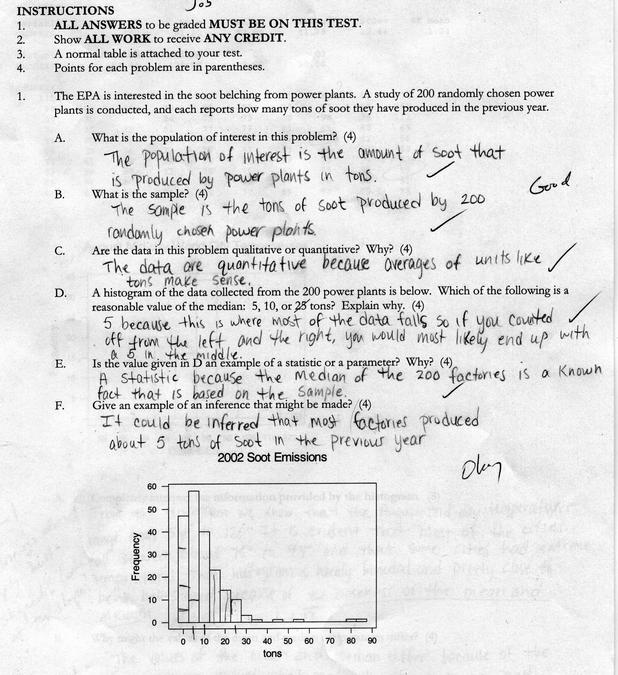 Job
INSTRUCTIONS
1. ALL ANSWERS to be graded MUST BE ON THIS TEST.
2. Show ALL WORK to receive ANY CREDIT.
3. A normal table is attached to your test.
4. Points for each problem are in parentheses.
1. The EPA is interested in the soot belching from power plants. A study of 200 randomly chosen power
plants is conducted, and each reports how many tons of soot they have produced in the previous year.
A. What is the population of interest in this problem? (4)
The population of interest is the amount of soot that
is produced by power plants in tons.
Good
B. What is the sample? (4)
The sample is the tons of soot produced by 200
randomly chosen power plants.
C. Are the data in this problem qualitative or quantitative? Why? (4)
The data are quantitative because averages of units like
tons make sense.
D. A histogram of the data collected from the 200 power plants is below. Which of the following is a
reasonable value of the median: 5, 10, or 25 tons? Explain why. (4)
5 because this is where most of the data falls so if you counted
off from the left and the right, you would most likely end up with
a 5 in the middle.
E. Is the value given in D an example of a statistic or a parameter? Why? (4)
A statistic because the median of the 200 factories is a known
fact that is based on the sample.
F. Give an example of an inference that might be made? (4)
It could be inferred that most factories produced
about 5 tons of soot in the previous year
Okay
2002 Soot Emissions
Frequency
60
50
40
30
20
10
0
0 10 20 30 40 50 60 70 80 90
tons